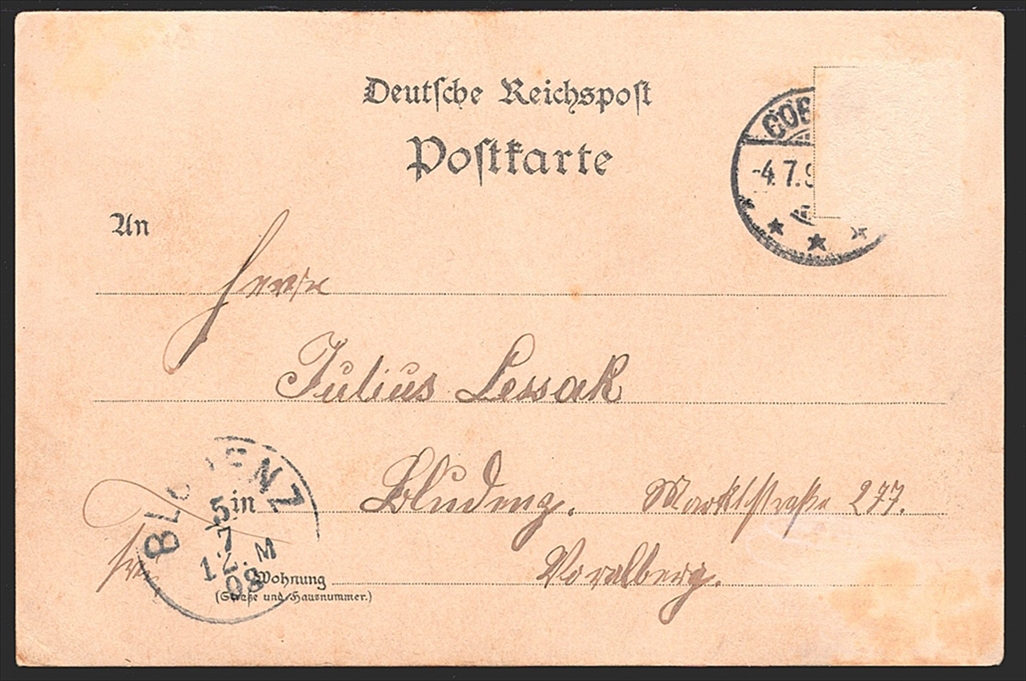 Deutsche Reichspost
Postkarte
COB
-4.7.9
An
Herrn
Julius Lessak
Bludenz. Marktstraße 277.
Voralberg.
BLUDENZ
5
7
12.M
98
in
Wohnung
(Straße und Hausnummer.)